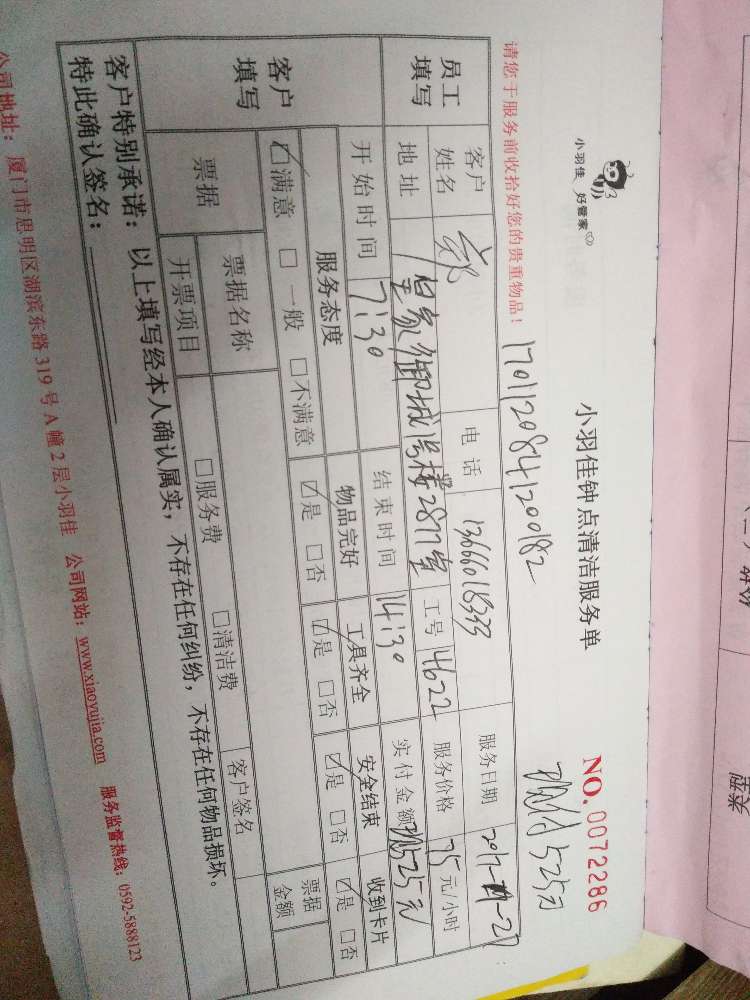 小羽佳 好管家
小羽佳钟点清洁服务单
NO. 0072286
1701120841200182
525元
请您于服务前收拾好您的贵重物品！
员工填写 客户姓名 郑 电话 13666018333 服务日期
地址 皇家御城 号楼2817室 工号 4622 服务价格 75 元/小时
开始时间 7:30 结束时间 14:30 实付金额 525元
客户填写 服务态度 物品完好 工具齐全 安全结束 收到卡片
☑满意 □一般 □不满意 ☑是 □否 ☑是 □否 ☑是 □否 ☑是 □否
票据 票据名称 票据金额
开票项目 □服务费 □清洁费 客户签名
客户特别承诺：以上填写经本人确认属实，不存在任何纠纷，不存在任何物品损坏。
特此确认签名：
公司地址：厦门市思明区湖滨东路319号A幢2层小羽佳 公司网站：www.xiaoyujia.com 服务监督热线：0592-5888123